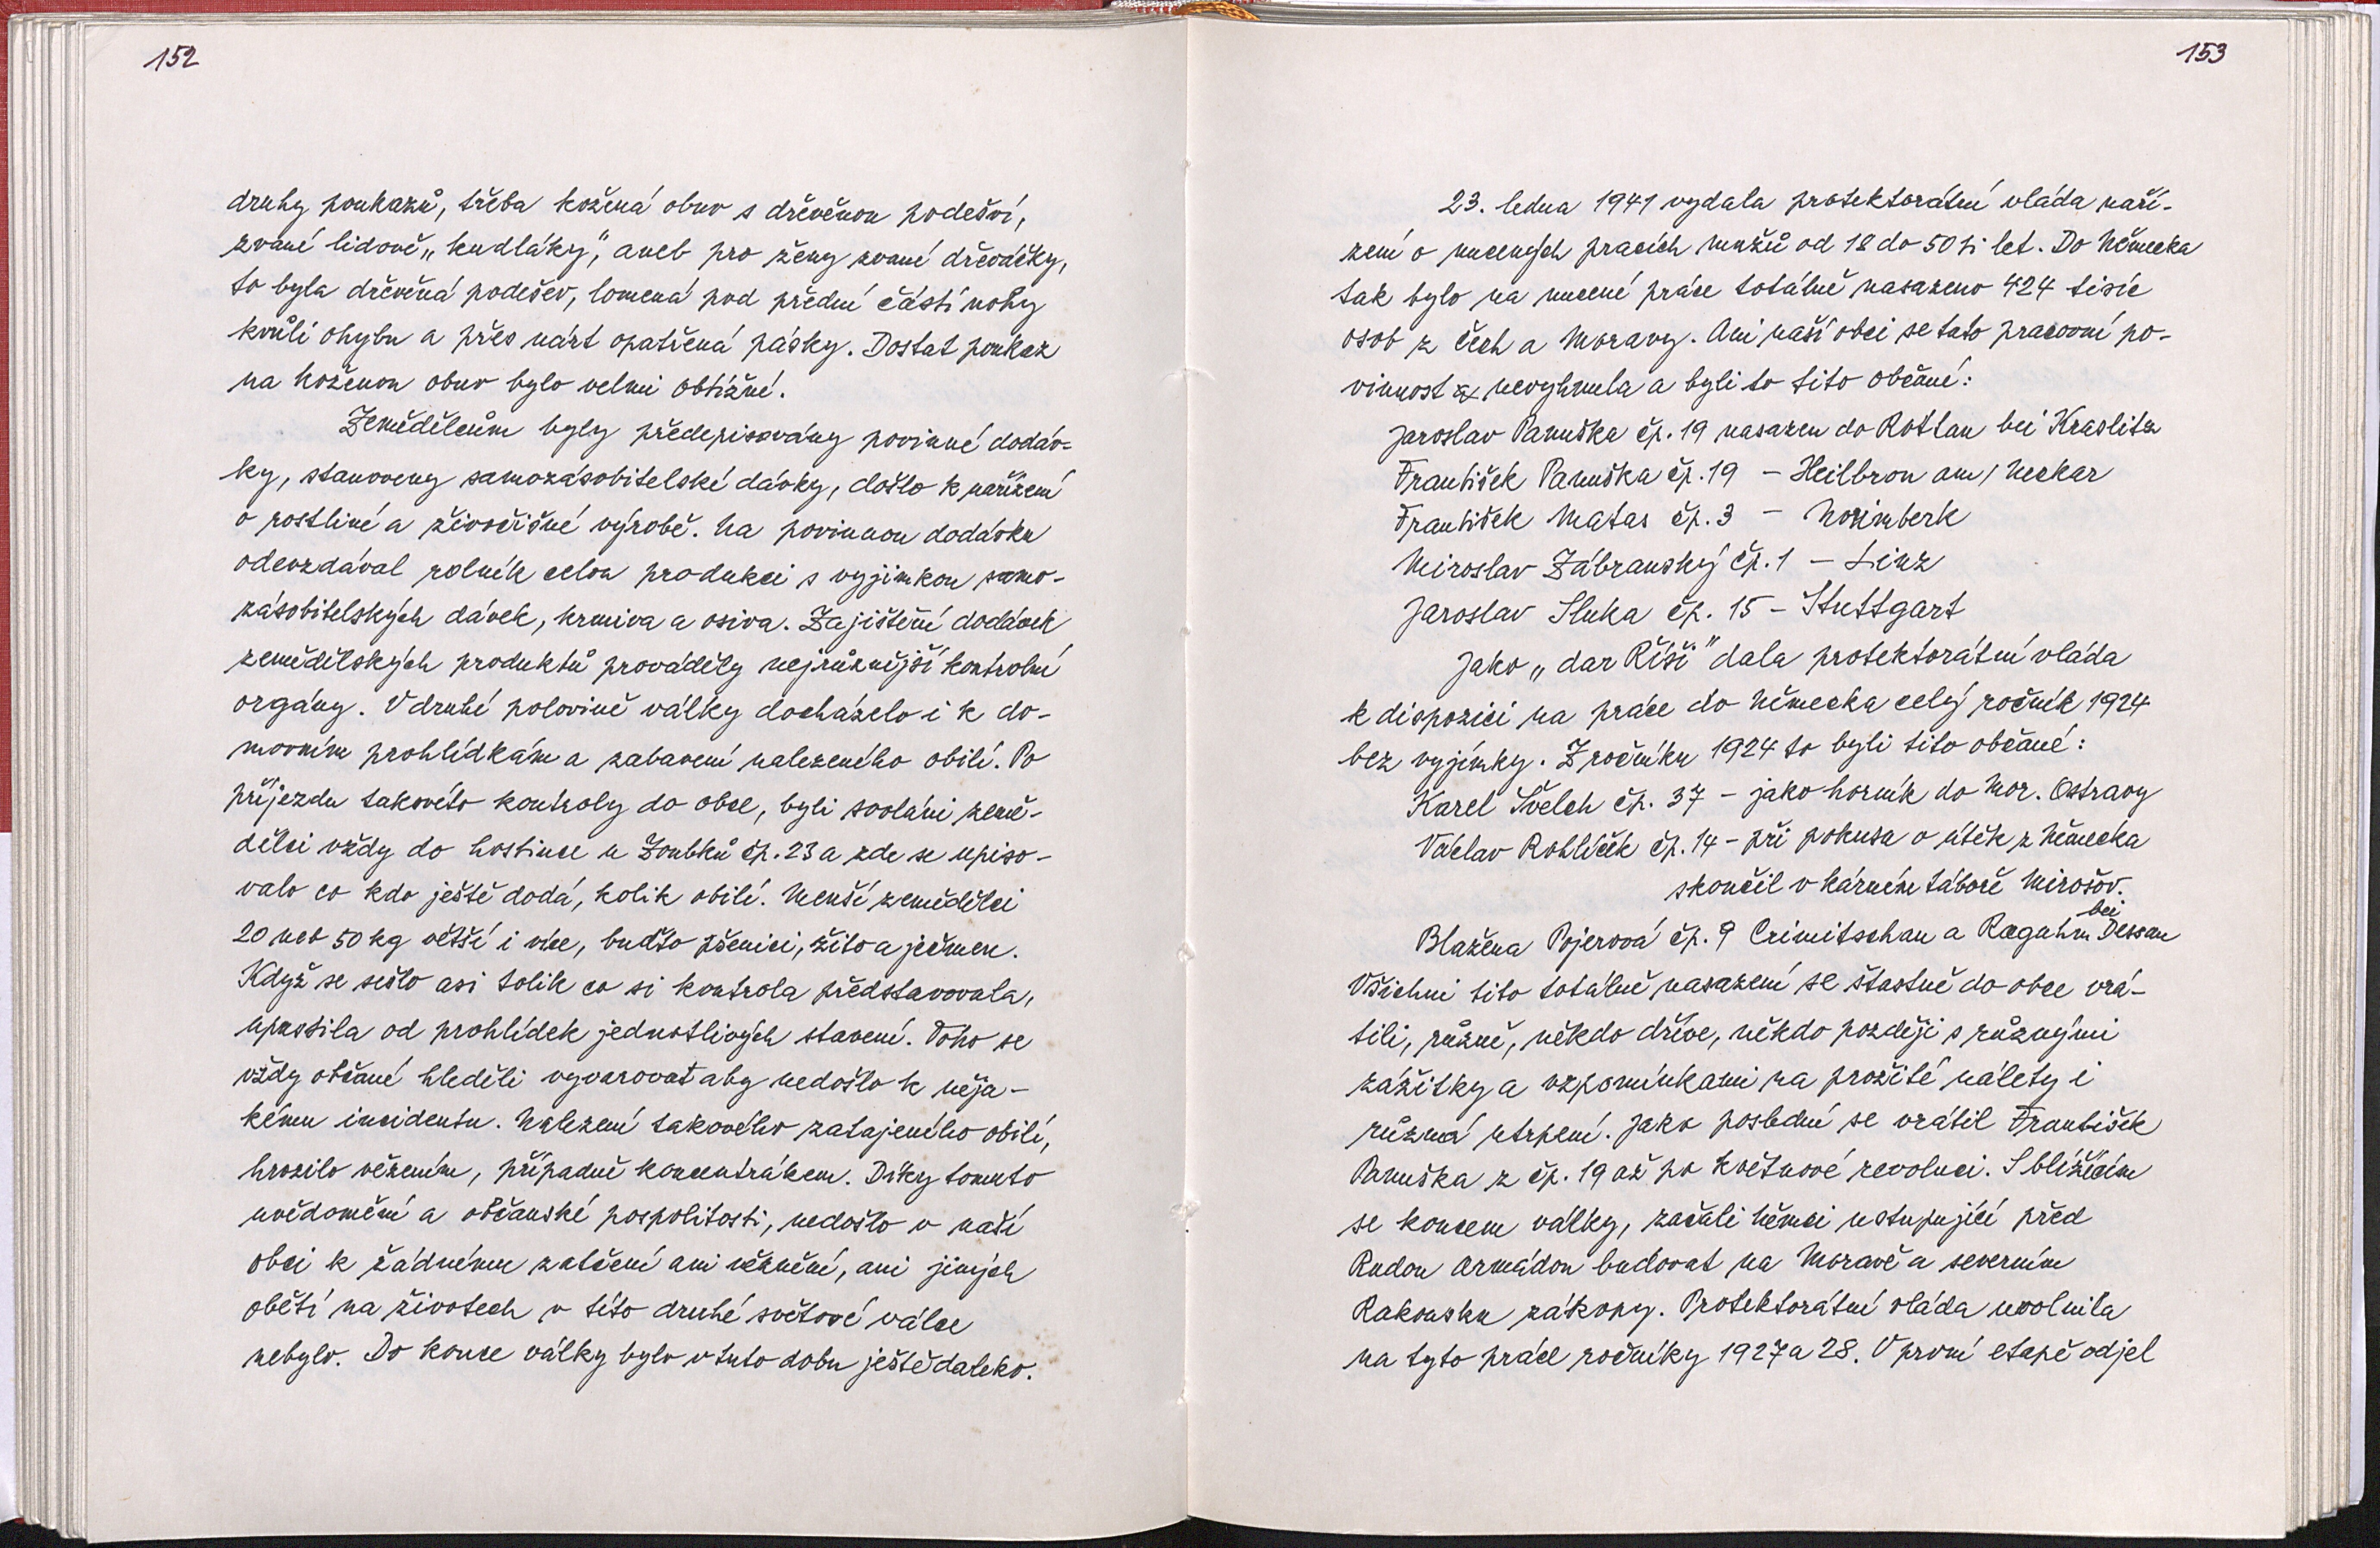 152
druhy poukazů, třeba kožená obuv s dřevěnou podešví,
zvané lidově „kudláky", aneb pro ženy zvané dřeváčky,
to byla dřevěná podešev, lomená pod přední částí nohy
kvůli ohybu a přes nárt opatřená pásky. Dostat poukaz
na koženou obuv bylo velmi obtížné.
Zemědělcům byly předepisovány povinné dodáv-
ky, stanoveny samozásobitelské dávky, došlo k nařízení
o rostliné a živočišné výrobě. Na povinnou dodávku
odevzdával rolník celou produkci s vyjimkou samo-
zásobitelských dávek, krmiva a osiva. Zajištění dodávek
zemědělských produktů prováděly nejrůznější kontrolní
orgány. V druhé polovině války docházelo i k do-
movním prohlídkám a zabavení nalezeného obilí. Po
příjezdu takovéto kontroly do obce, byli svoláni země-
dělci vždy do hostince u Zoubků čp. 23 a zde se upiso-
valo co kdo ještě dodá, kolik obilí. Menší zemědělci
20 neb 50 kg větší i více, buďto pšenici, žito a ječmen.
Když se sešlo asi tolik co si kontrola představovala,
upustila od prohlídek jednotlivých stavení. Toho se
vždy občané hleděli vyvarovat aby nedošlo k něja-
kému incidentu. Nalezení takového zatajeného obilí,
hrozilo vězením, případně koncentrákem. Díky tomuto
uvědomění a občanské pospolitosti, nedošlo v naší
obci k žádnému zatčení ani věznění, ani jiných
obětí na životech v této druhé světové válce
nebylo. Do konce války bylo v tuto dobu ještě daleko.
153
23. ledna 1941 vydala protektorátní vláda naří-
zení o nucených pracích mužů od 18 do 50 ti let. Do Německa
tak bylo na nucené práce totálně nasazeno 424 tisíc
osob z Čech a Moravy. Ani naší obci se tato pracovní po-
vinnost nevyhnula a byli to tito občané:
Jaroslav Panuška čp. 19 nasazen do Rottau bei Kraslitz
František Panuška čp. 19 - Heilbron am/Neckar
František Matas čp. 3 - Norimberk
Miroslav Zábranský čp. 1 - Linz
Jaroslav Sluka čp. 15 - Stuttgart
Jako „dar Říši" dala protektorátní vláda
k dispozici na práce do Německa celý ročník 1924
bez vyjímky. Z ročníku 1924 to byli tito občané:
Karel Švelch čp. 37 - jako horník do Mor. Ostravy
Václav Rohlíček čp. 14 - při pokusu o útěk z Německa
skončil v kárném táboře Mirošov.
Blažena Pojerová čp. 9 Crimitschau a Raguhm bei Dessau
Všichni tito totálně nasazení se šťastně do obce vrá-
tili, různě, někdo dříve, někdo později s různými
zážitky a vzpomínkami na prožité nálety i
různá utrpení. Jako poslední se vrátil František
Panuška z čp. 19 až po květnové revoluci. S blížícím
se koncem války, začali Němci ustupující před
Rudou Armádou budovat na Moravě a severním
Rakousku zákopy. Protektorátní vláda uvolnila
na tyto práce ročníky 1927 a 28. V první etapě odjel